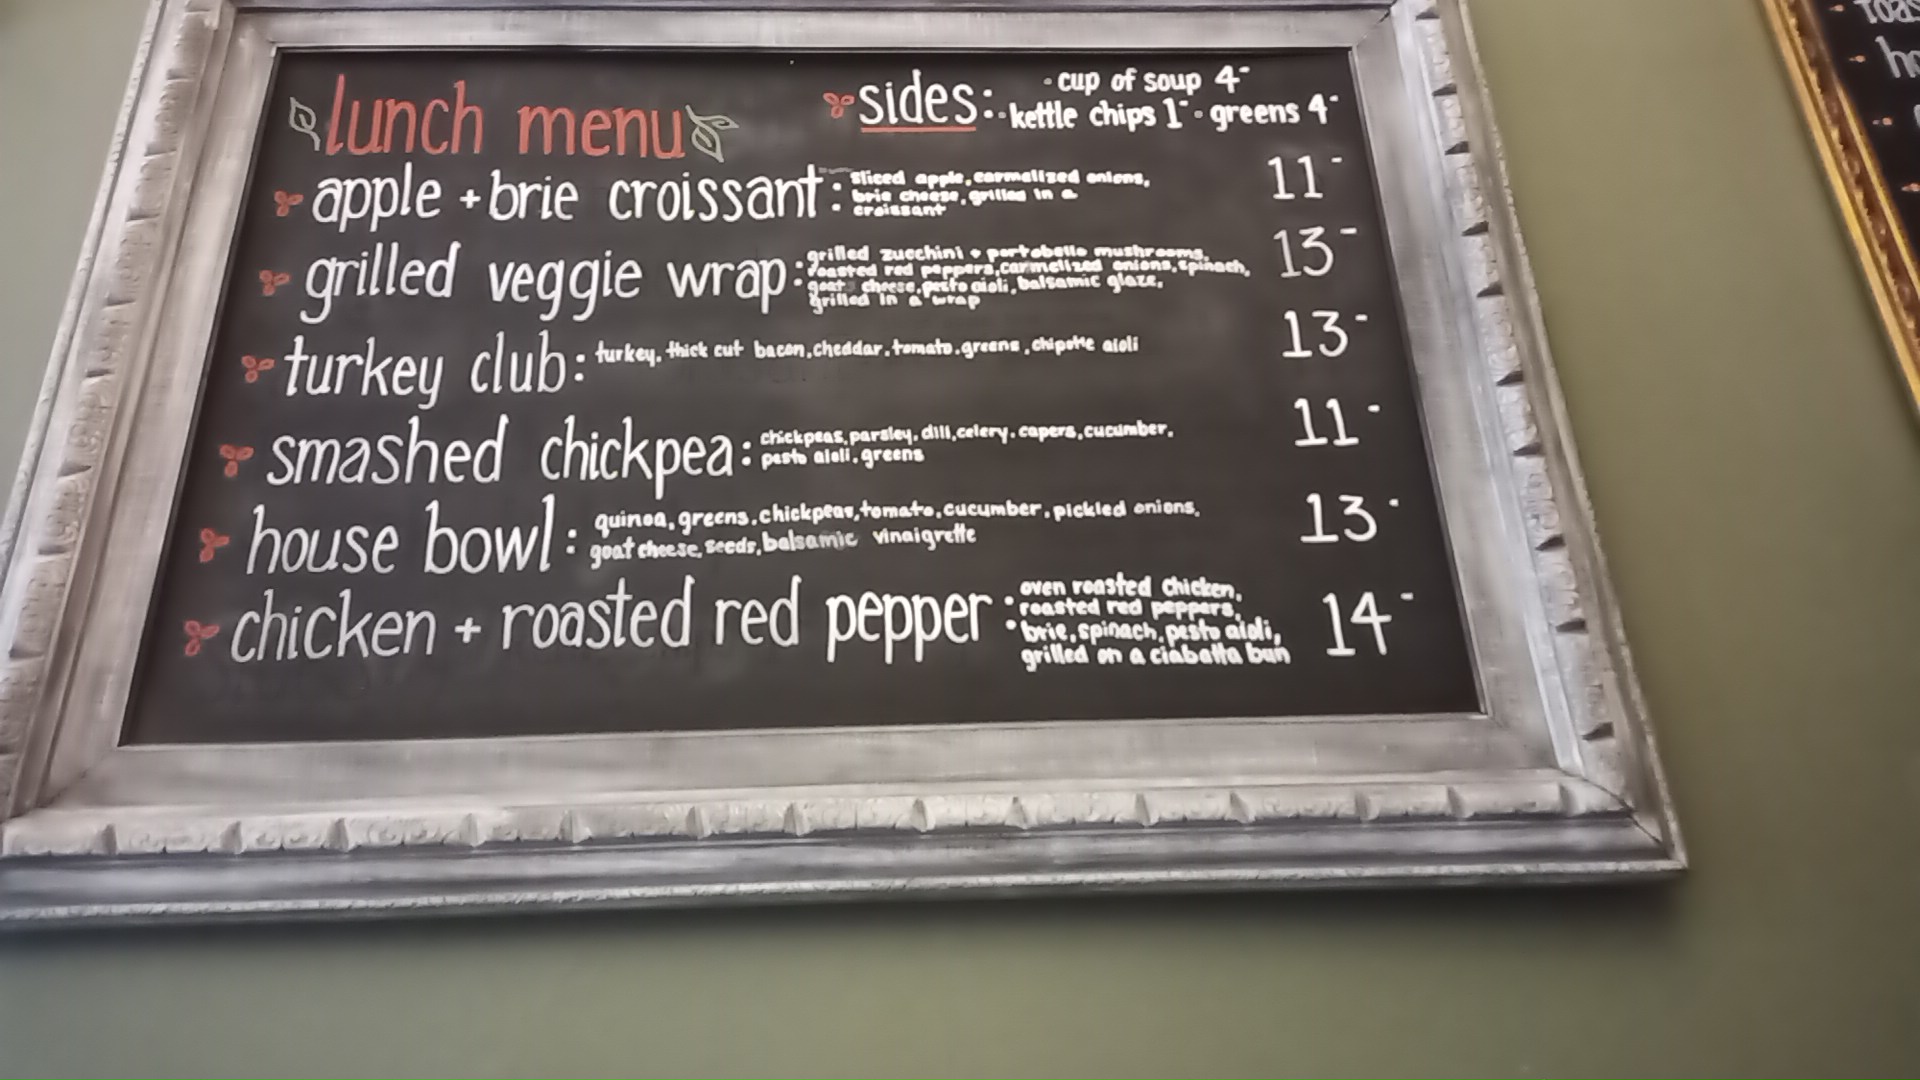 lunch menu
sides:
· cup of soup 4-
· kettle chips 1- · greens 4-
apple + brie croissant: sliced apple, carmalized onions, 11-
brie cheese, grilled in a
croissant
grilled veggie wrap: grilled zucchini + portobello mushrooms, 13-
roasted red peppers, carmelized onions, spinach,
goat cheese, pesto aioli, balsamic glaze,
grilled in a wrap
turkey club: turkey, thick cut bacon, cheddar, tomato, greens, chipotle aioli 13-
smashed chickpea: chickpeas, parsley, dill, celery, capers, cucumber, 11-
pesto aioli, greens
house bowl: quinoa, greens, chickpeas, tomato, cucumber, pickled onions, 13-
goat cheese, seeds, balsamic vinaigrette
chicken + roasted red pepper: oven roasted chicken, 14-
roasted red peppers,
brie, spinach, pesto aioli,
grilled on a ciabatta bun